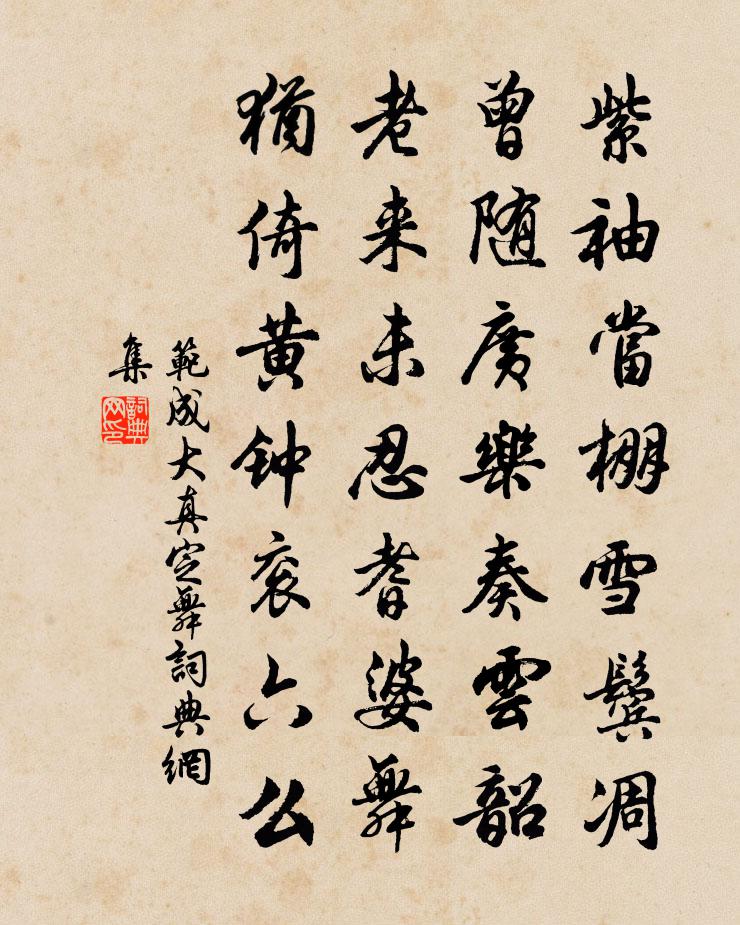 紫袖當棚雪鬓凋
曾随廣樂奏雲韶
老来未忍耆婆舞
猶倚黄钟衮六么
範成大真定舞詞典網
集
詞典
网印